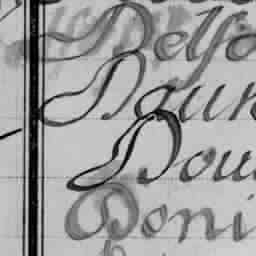 Belfo
Daun
Dou
Doni